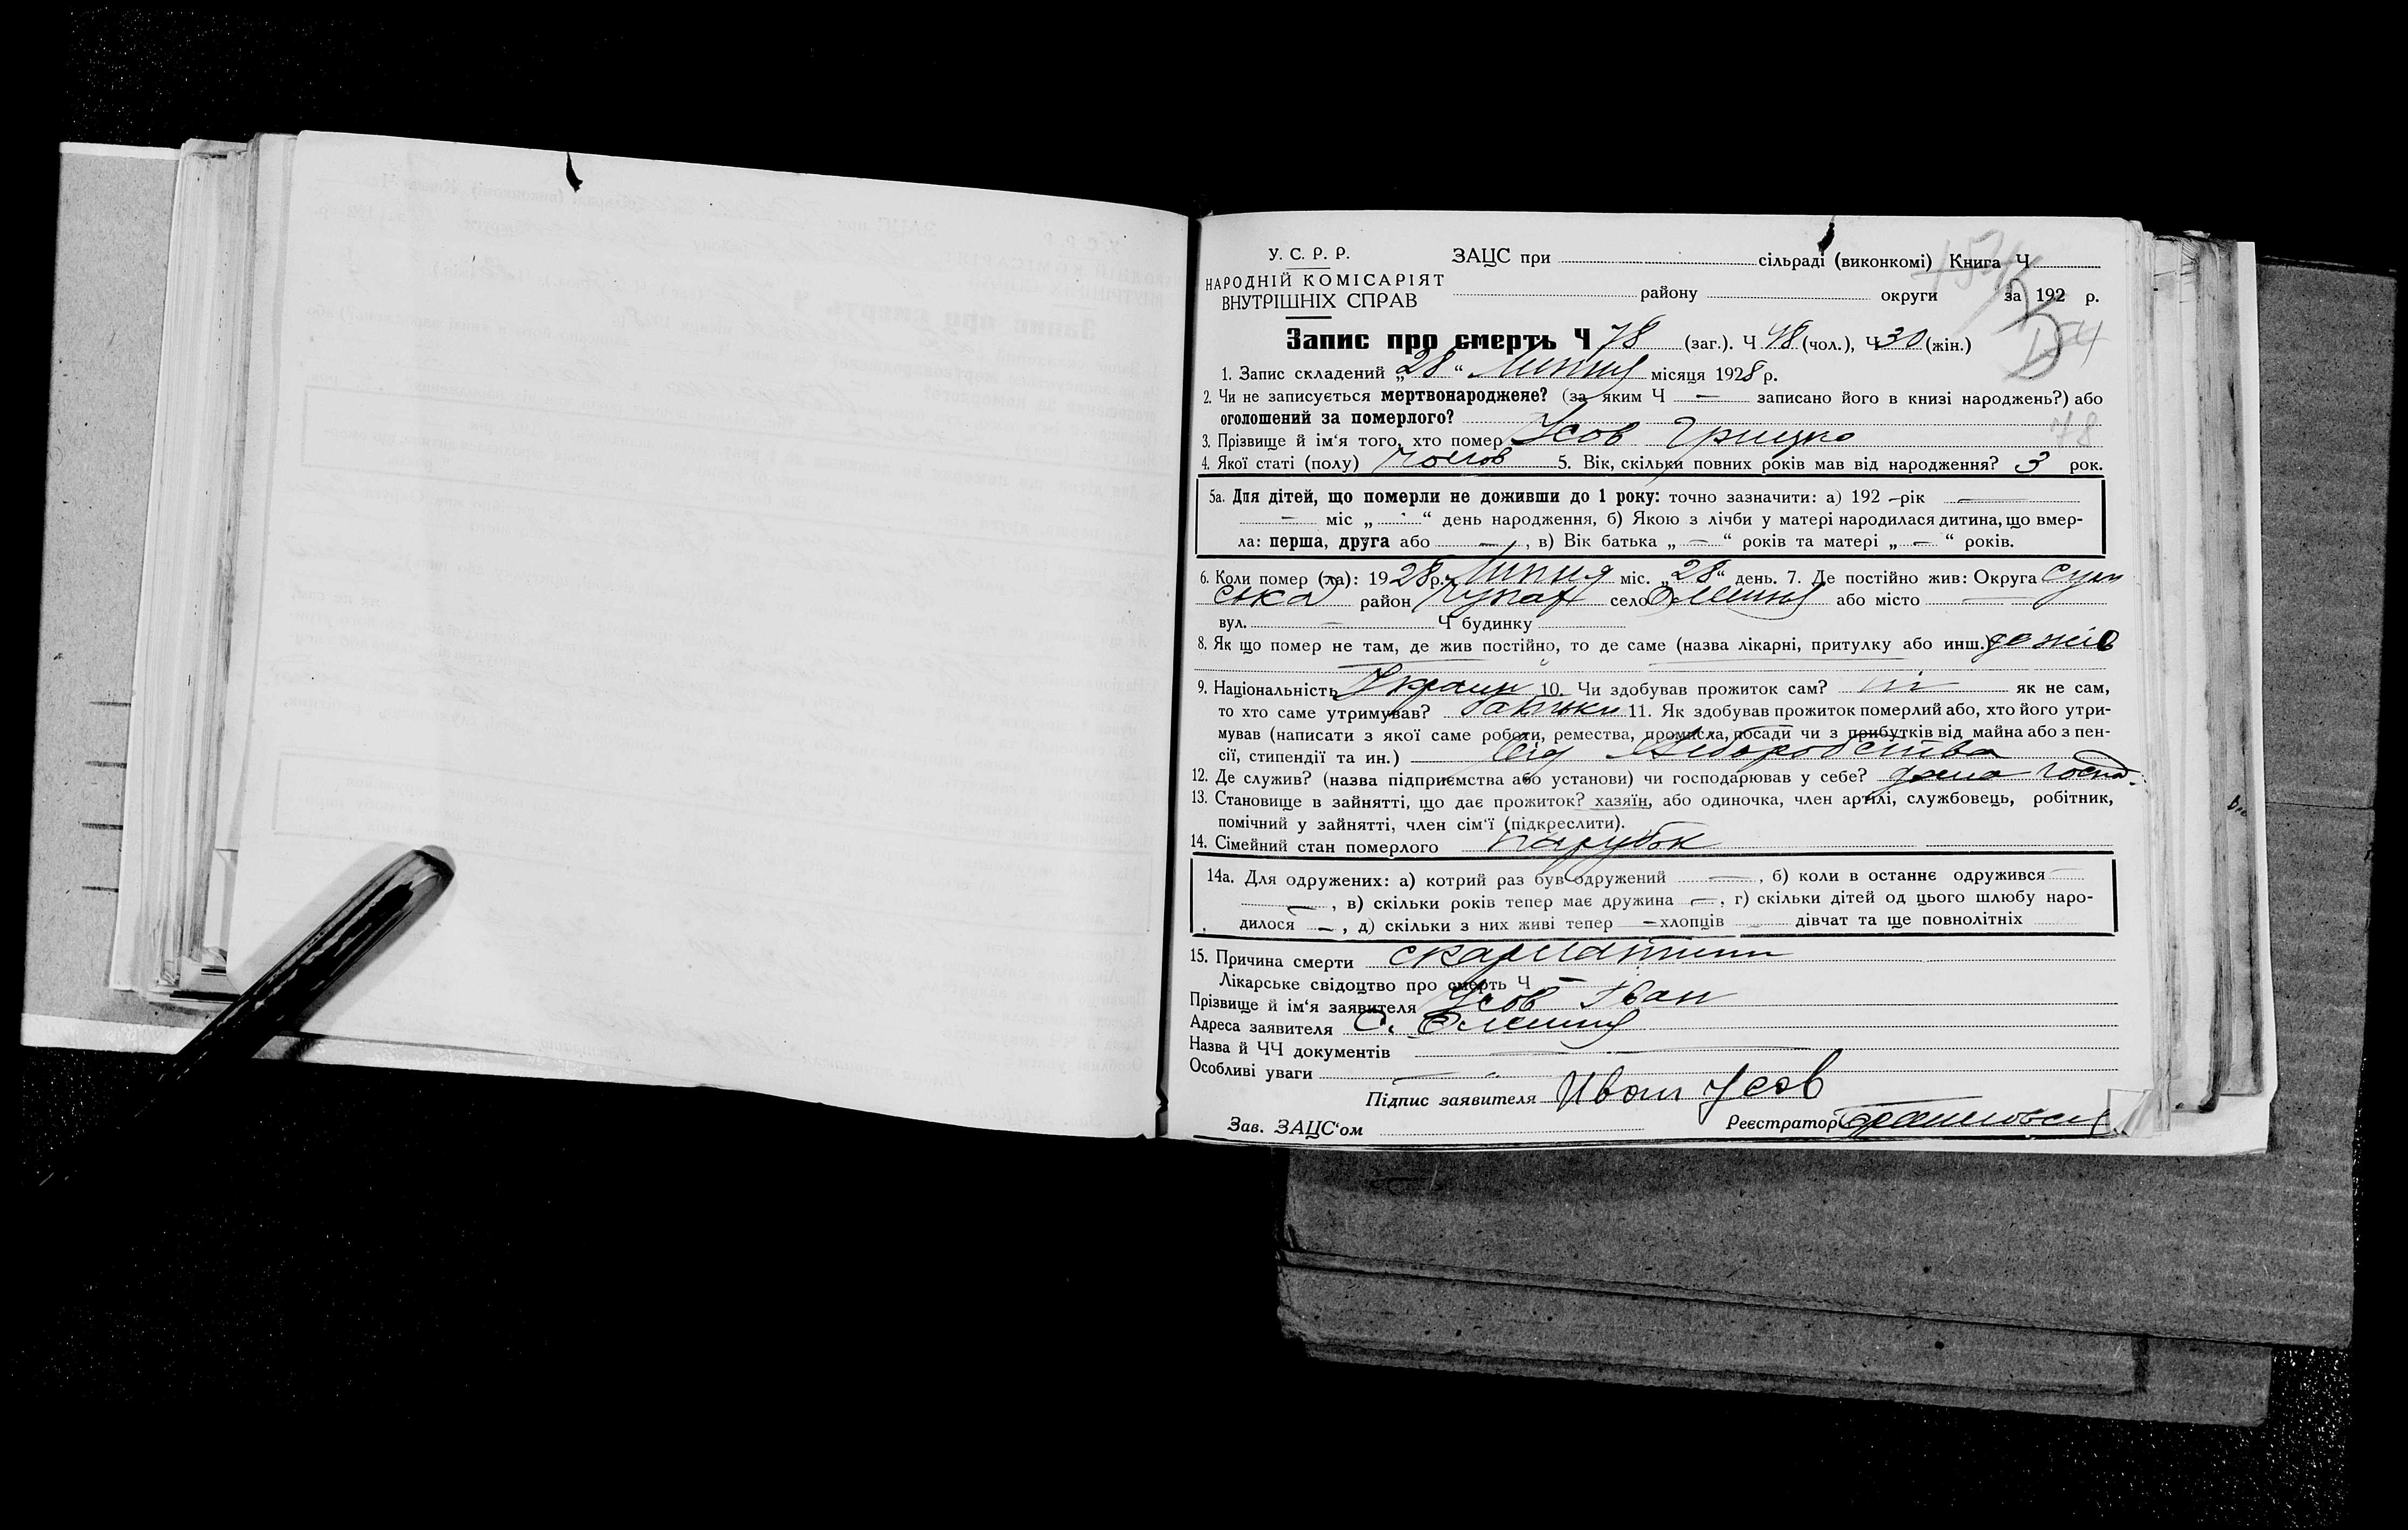 У. С. Р. Р.
НАРОДНІЙ КОМІСАРІЯТ
ВНУТРІШНІХ СПРАВ
ЗАЦС при сільраді (виконкомі) Книга Ч
району округи за 192 р.
Запис про смерть Ч 78 (заг.). Ч 48 (чол.), Ч 30 (жін.)
1. Запис складений „28“ Липня місяця 1928 р.
2. Чи не записується мертвонароджене? (за яким Ч — записано його в книзі народжень?) або
оголошений за померлого?
78
3. Прізвище й ім'я того, хто помер Усов Грицко
4. Якої статі (полу) чолов 5. Вік, скільки повних років мав від народження? 3 рок.
5а. Для дітей, що померли не доживши до 1 року: точно зазначити: а) 192 – рік —
— міс „ “ день народження, б) Якою з лічби у матері народилася дитина, що вмер-
ла: перша, друга або —, в) Вік батька „ — “ років та матері „ — “ років.
6. Коли помер (ла): 1928 р. Липня міс. „28“ день. 7. Де постійно жив: Округа Сум
ська район село або місто —
вул. — Ч будинку
8. Як що помер не там, де жив постійно, то де саме (назва лікарні, притулку або инш.) де жив
9. Національність Украин 10. Чи здобував прожиток сам? ні як не сам,
то хто саме утримував? батьки 11. Як здобував прожиток померлий або, хто його утри-
мував (написати з якої саме роботи, ремества, промисла, посади чи з прибутків від майна або з пен-
сії, стипендії та ин.) від хлборобства
12. Де служив? (назва підприємства або установи) чи господарював у себе? дома госпо.
13. Становище в зайнятті, що дає прожиток? хазяїн, або одиночка, член артілі, службовець, робітник,
помічний у зайнятті, член сім'ї (підкреслити).
14. Сімейний стан померлого парубок
14а. Для одружених: а) котрий раз був одружений —, б) коли в останнє одружився —
—, в) скільки років тепер має дружина —, г) скільки дітей од цього шлюбу наро-
дилося —, д) скільки з них живі тепер — хлопців — дівчат та ще повнолітніх
15. Причина смерти скарлатини
Лікарське свідоцтво про смерть Ч —
Прізвище й ім'я заявителя Усов Іван
Адреса заявителя С.
Назва й ЧЧ документів —
Особливі уваги —
Підпис заявителя Иван Усов
Зав. ЗАЦС'ом Реєстратор